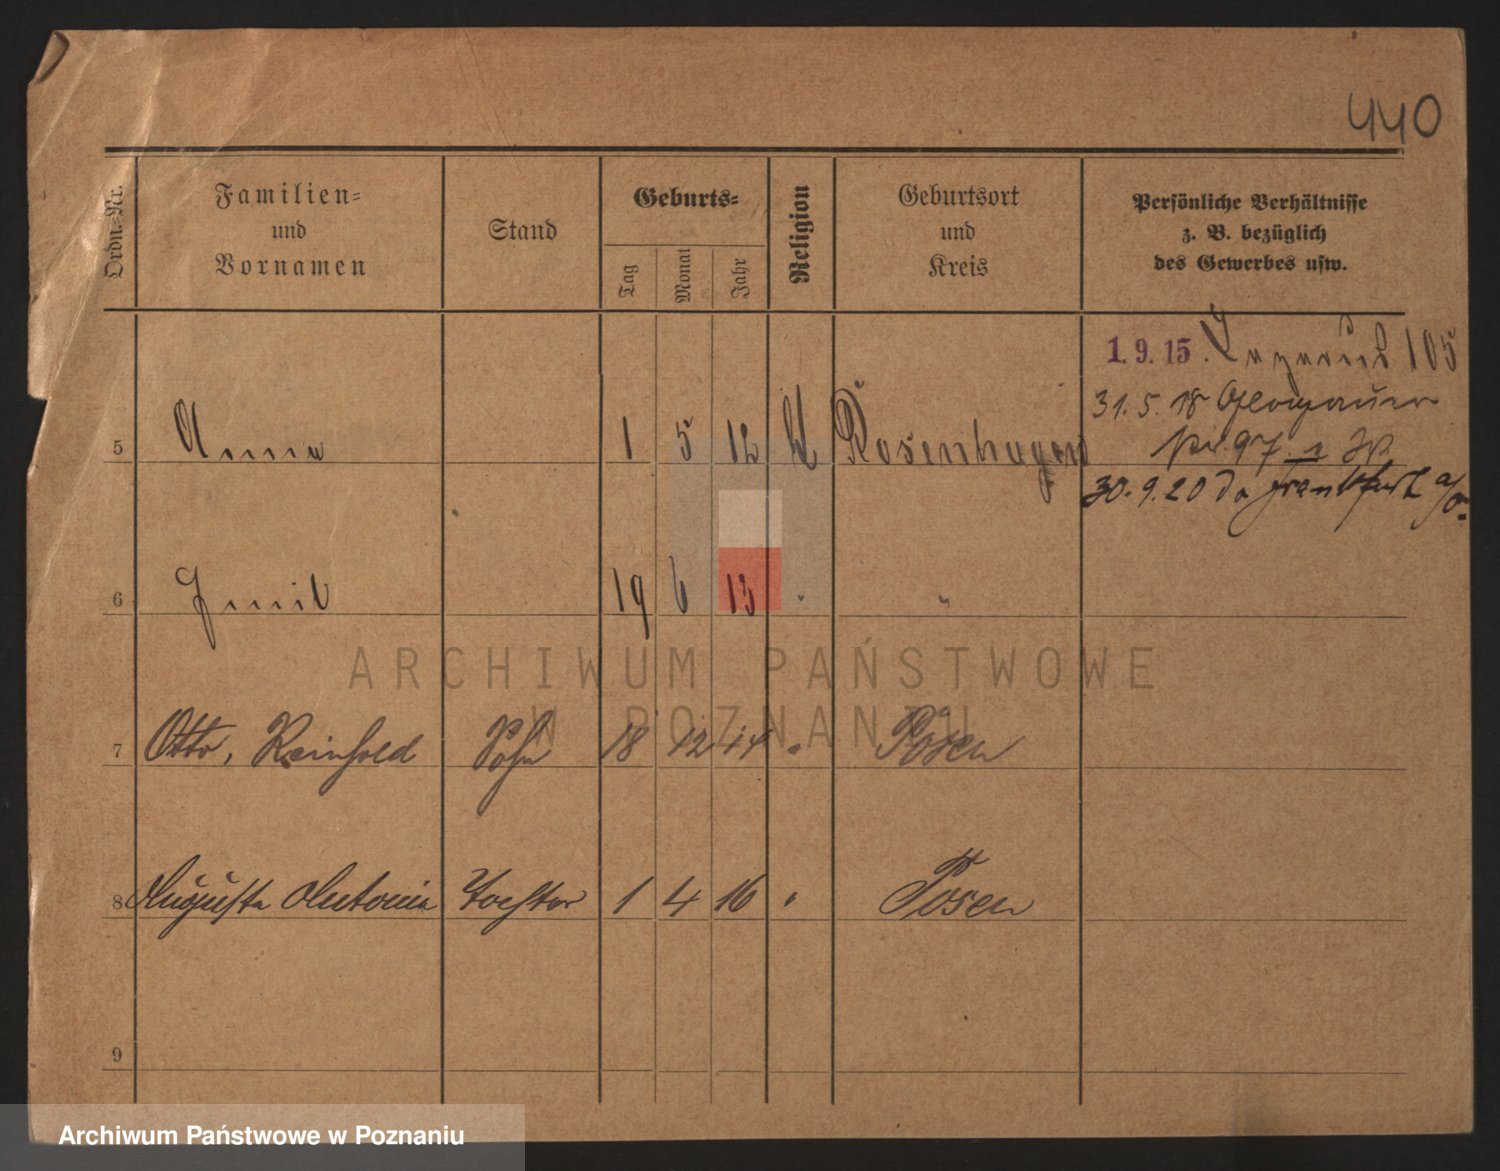 440
Ordn.-Nr.
Familien-
und
Vornamen
Stand
Geburts-
Tag
Monat
Jahr
Religion
Geburtsort
und
Kreis
Persönliche Verhältnisse
z. B. bezüglich
des Gewerbes usw.
1. 9. 15. 105
31. 5. 18 Glogauer
97
30. 9. 20 Frankfurt a/O.
5 Anna 1 5 12 Rosenhagen
6 Emil 19 6 13 " "
7 Otto, Reinhold Sohn 18 12 14 " Posen
8 Auguste Antonie Tochter 1 4 16 " Posen
9
ARCHIWUM PAŃSTWOWE
W POZNANIU
Archiwum Państwowe w Poznaniu